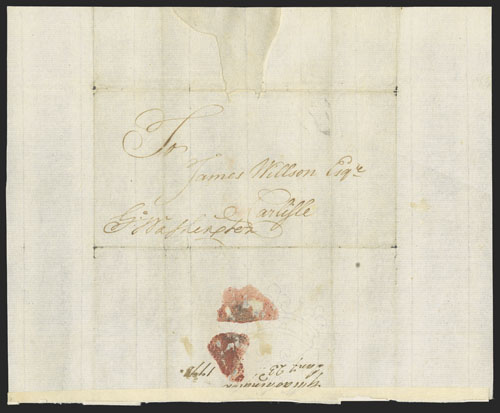 To
James Willson Esqr
Carlisle
Go Washington
Jany 23
1771.